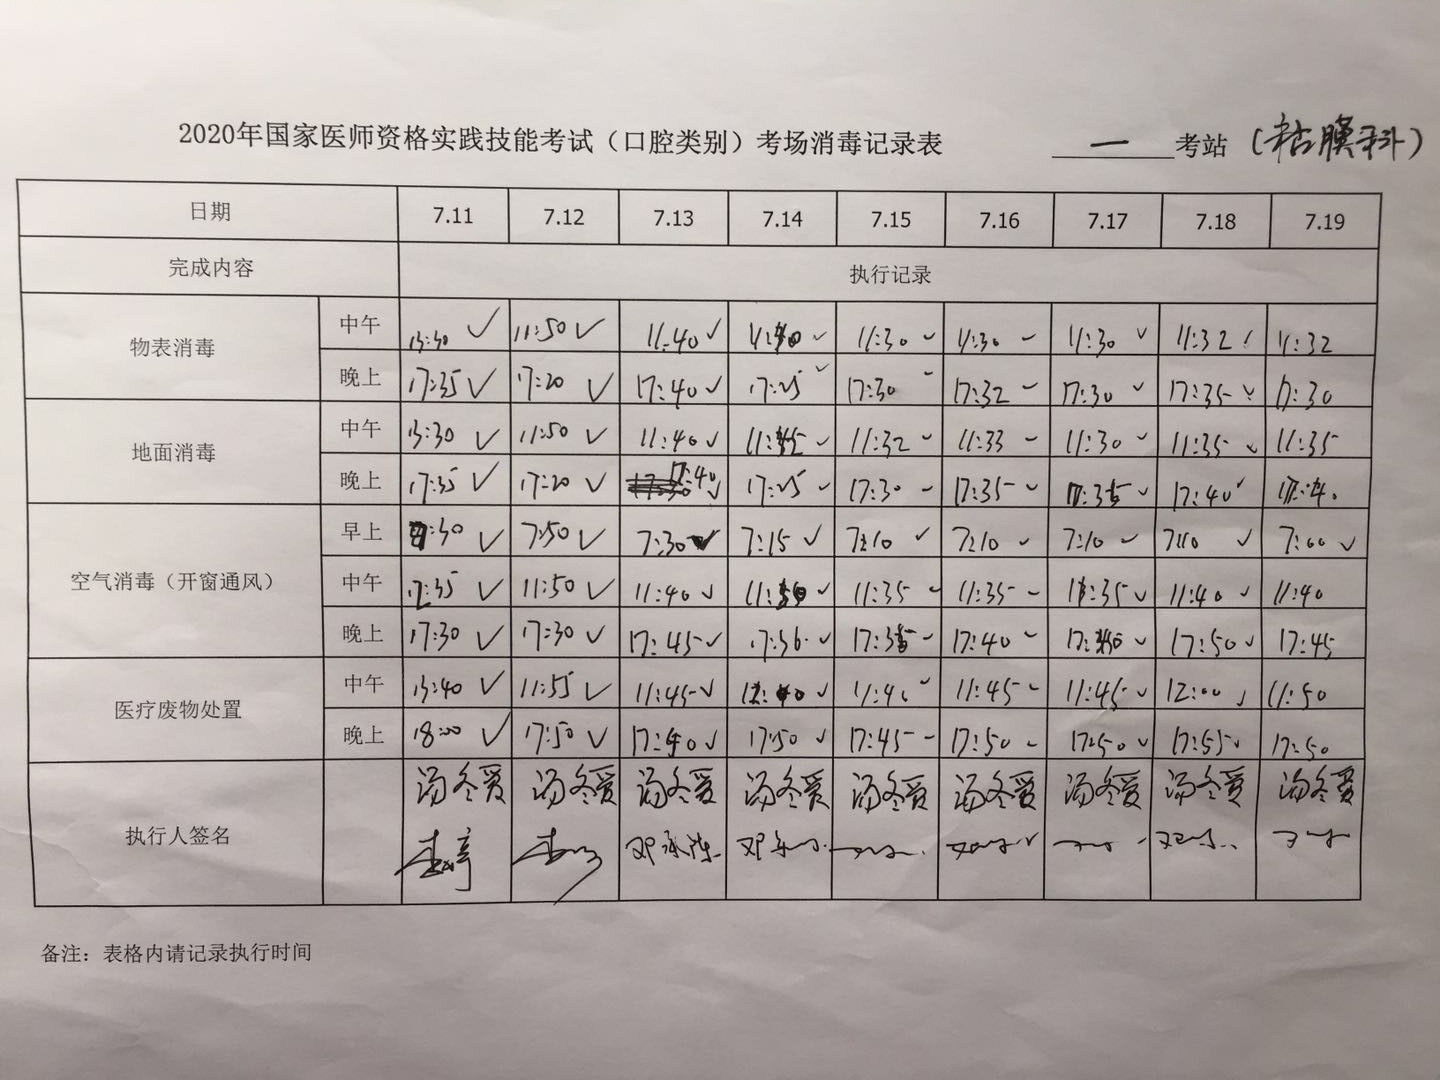 2020年国家医师资格实践技能考试（口腔类别）考场消毒记录表 一 考站 (粘膜科)
日期 7.11 7.12 7.13 7.14 7.15 7.16 7.17 7.18 7.19
完成内容 执行记录
物表消毒
中午 13:30 ✓ 11:50 ✓ 11:40 ✓ ✓ 11:30 ✓ 11:30 ✓ 11:30 ✓ 11:32 11:32
晚上 17:35 ✓ 17:20 ✓ 17:40 ✓ 17:25 ✓ 17:30 17:32 ✓ 17:30 ✓ 17:35 ✓ 17:30
地面消毒
中午 13:30 ✓ 11:50 ✓ 11:40 ✓ ✓ 11:32 ✓ 11:33 ✓ 11:30 ✓ 11:35 ✓ 11:35
晚上 17:35 ✓ 17:20 ✓ 17:40 ✓ 17:25 ✓ 17:30 ✓ 17:35 ✓ 17:35 ✓ 17:40 ✓
空气消毒（开窗通风）
早上 ✓ 7:50 ✓ 7:30 ✓ 7:15 ✓ 7:10 ✓ 7:10 ✓ 7:10 ✓ 7:10 ✓ 7:00 ✓
中午 ✓ 11:50 ✓ 11:40 ✓ ✓ 11:35 ✓ 11:35 ✓ 11:35 ✓ 11:40 ✓ 11:40
晚上 17:30 ✓ 17:30 ✓ 17:45 ✓ ✓ 17:35 ✓ 17:40 ✓ ✓ 17:50 ✓ 17:45
医疗废物处置
中午 13:40 ✓ 11:55 ✓ 11:45 ✓ ✓ ✓ 11:45 ✓ 11:45 ✓ 12:00 ✓ 11:50
晚上 18:00 ✓ 17:50 ✓ ✓ 17:50 ✓ 17:45 ✓ 17:50 ✓ 17:50 ✓ 17:55 ✓ 17:50
执行人签名
汤冬爱 汤冬爱 汤冬爱 汤冬爱 汤冬爱 汤冬爱 汤冬爱 汤冬爱 汤冬爱
备注：表格内请记录执行时间